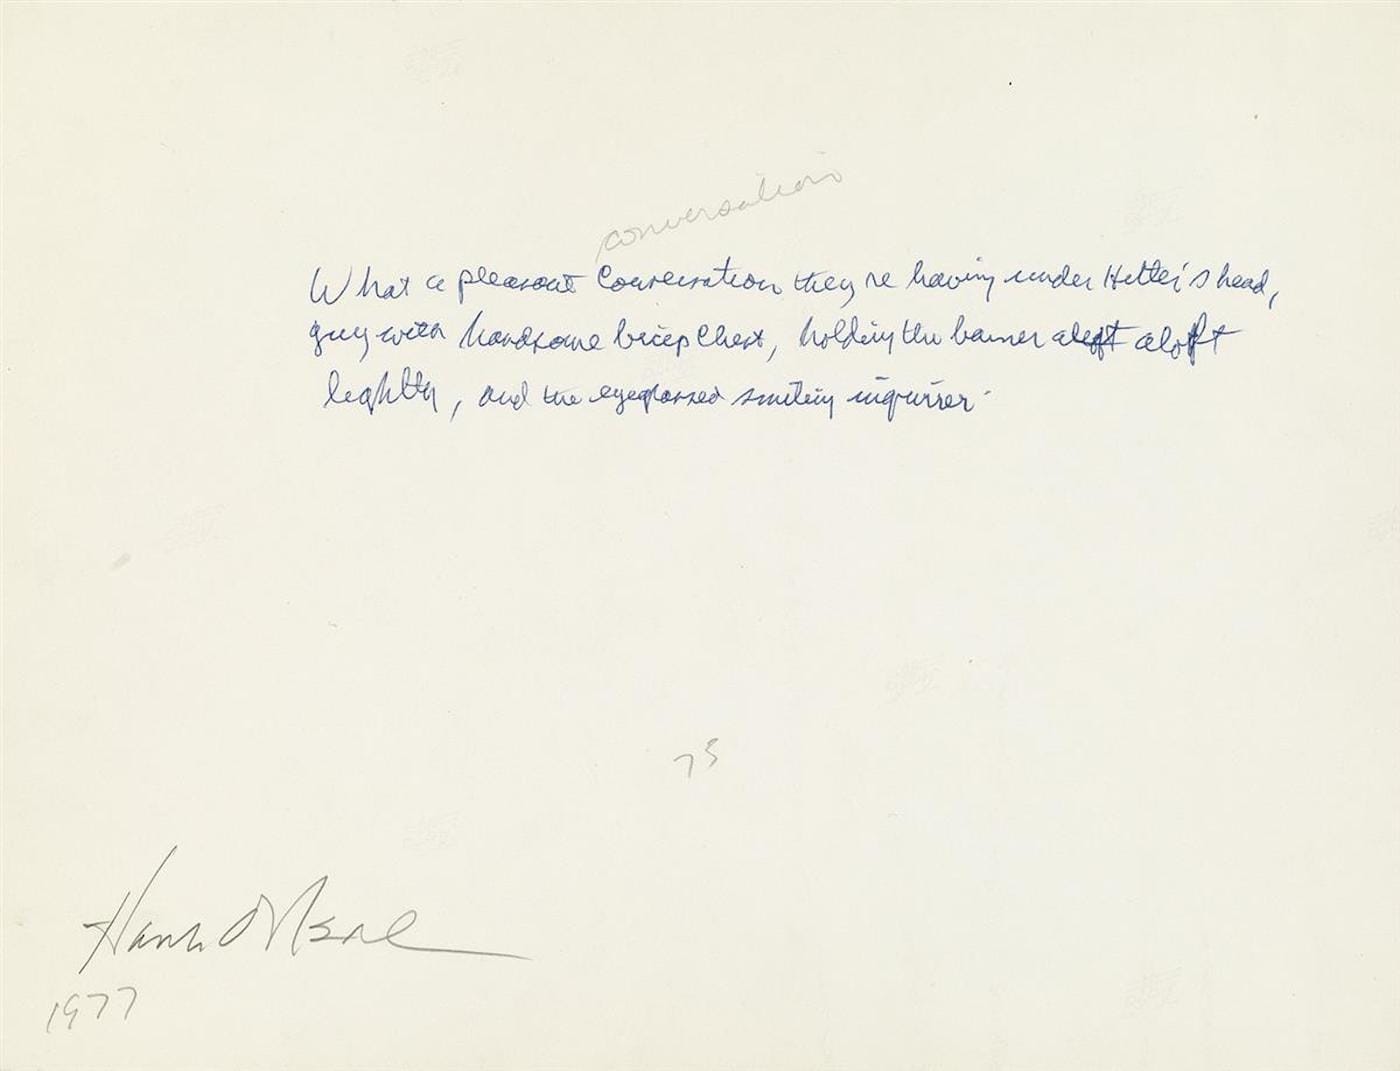 conversation
What a pleasant Conversation they're having under Hitler's head,
guy with handsome bicep Chest, holding the banner aloft aloft
lightly, and the eyeglassed smiling inquirer.
75
Hank O'Neal
1977